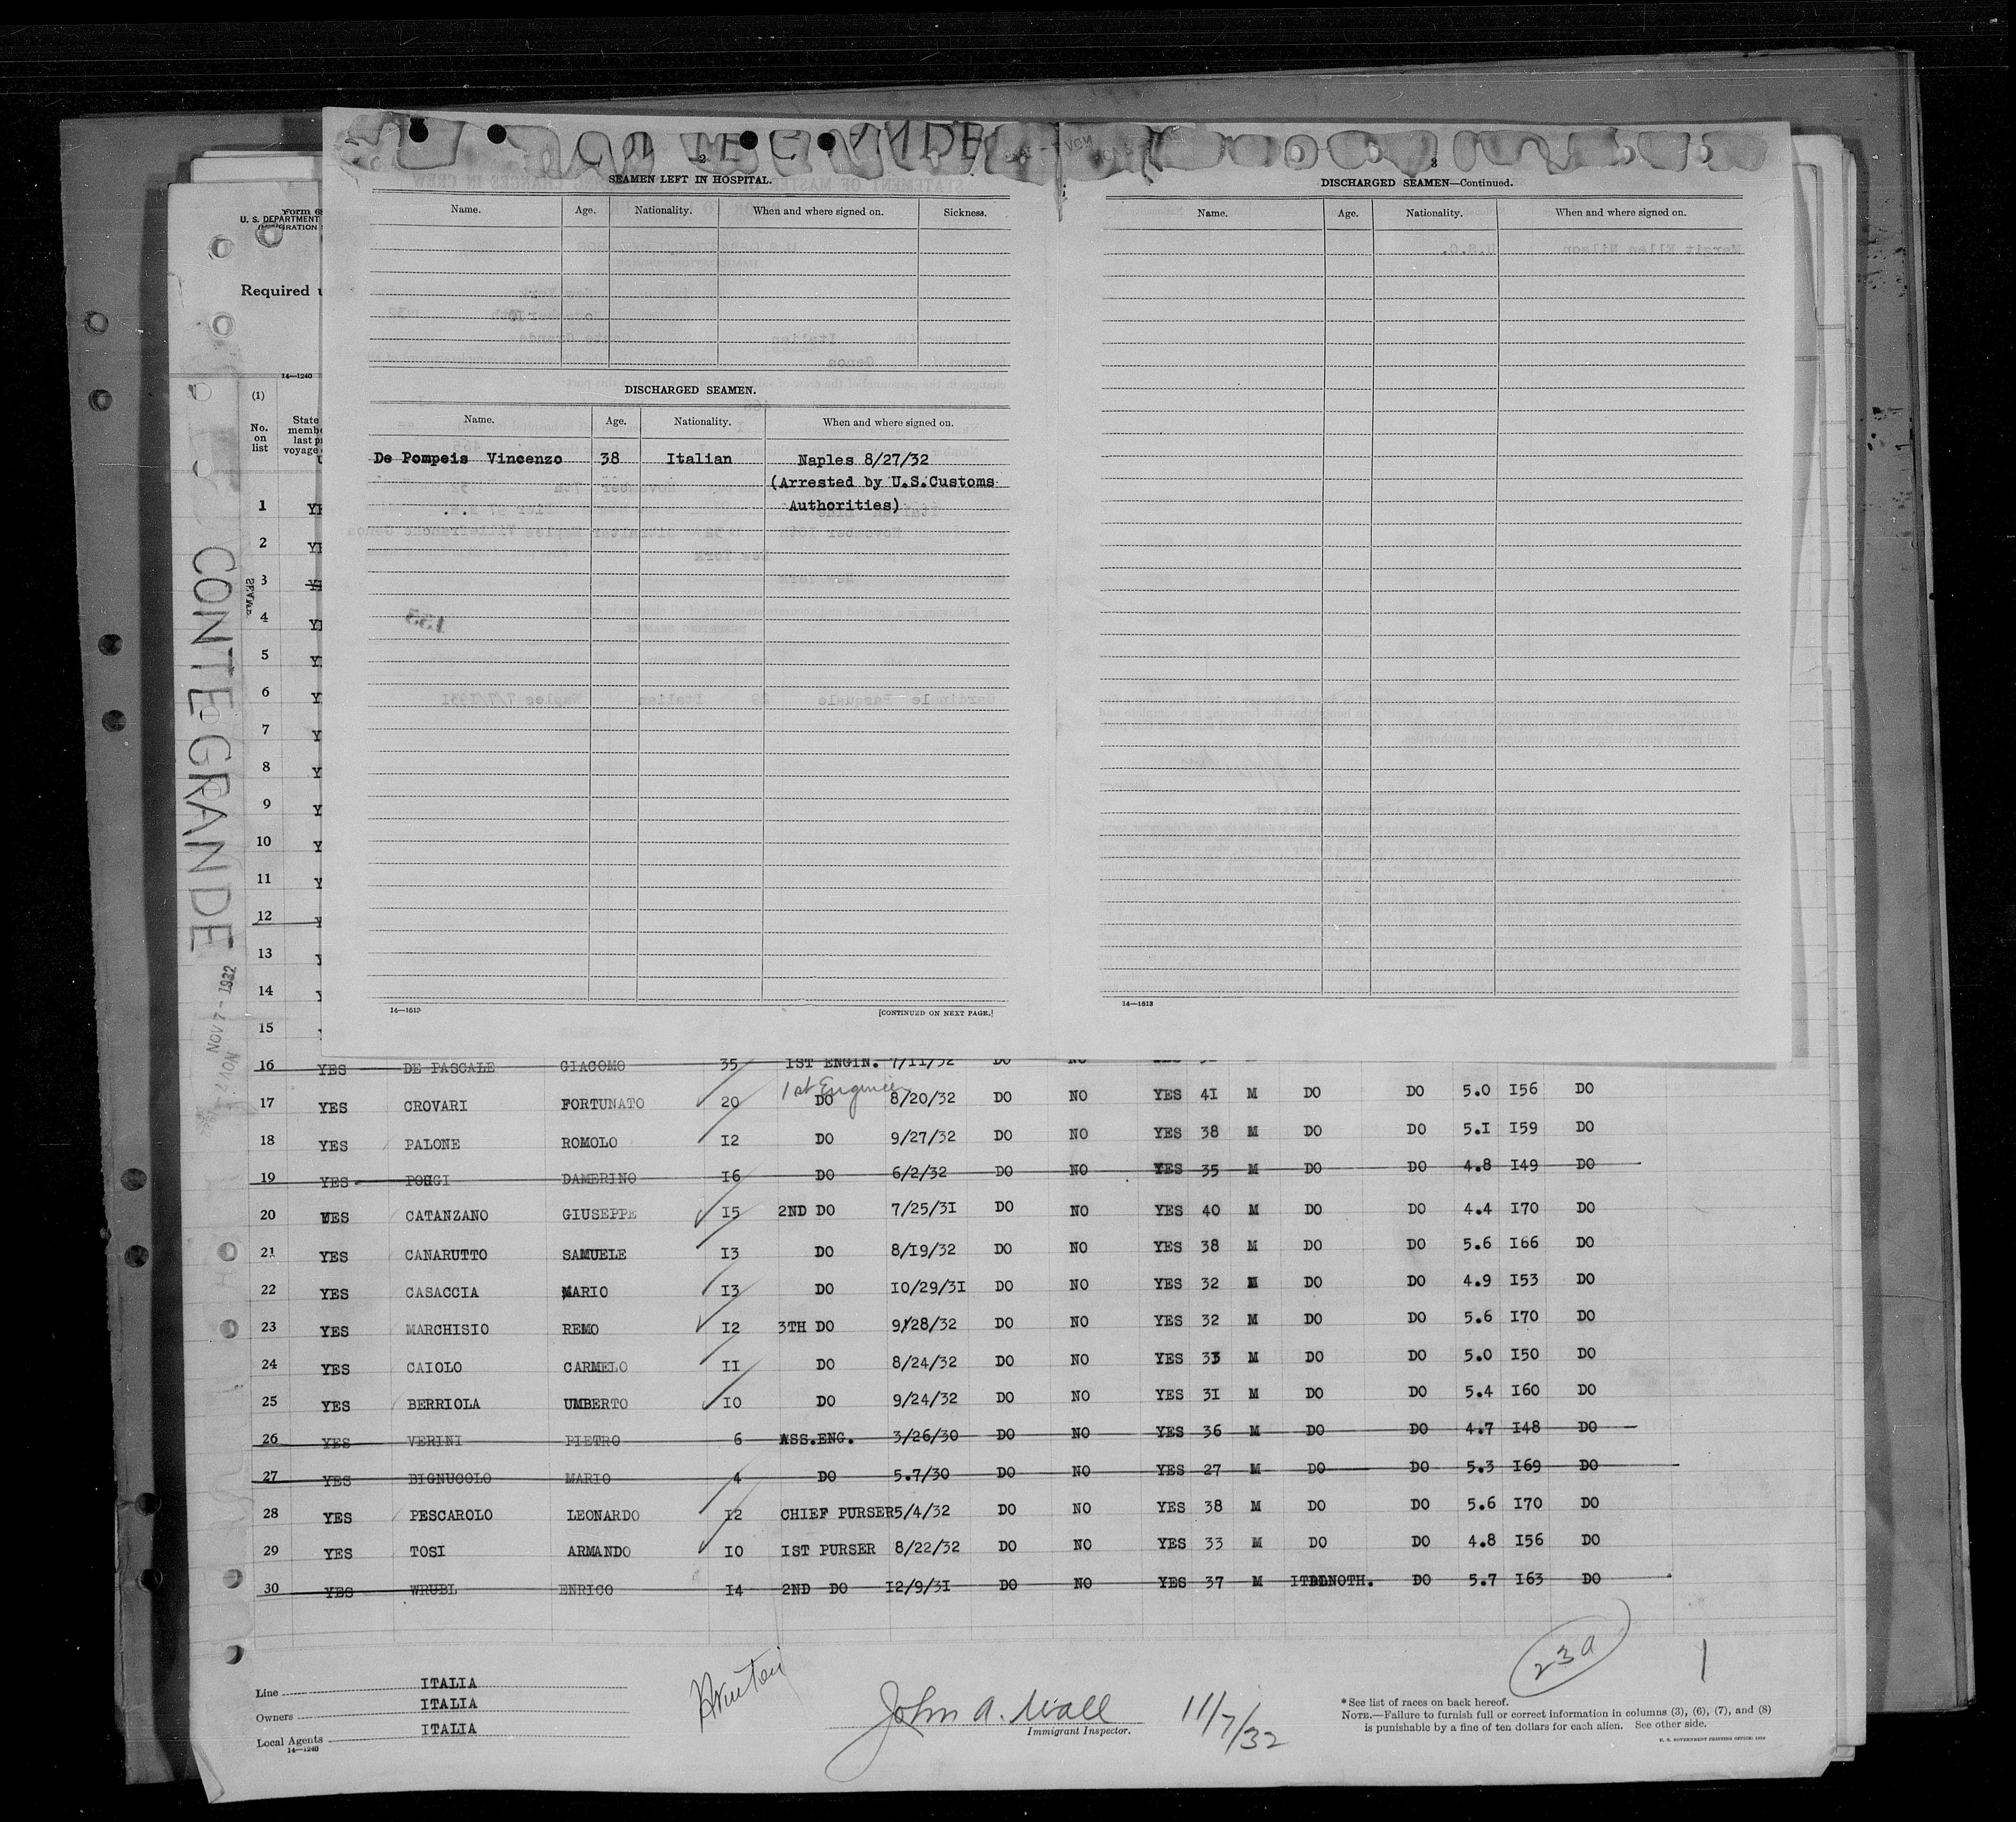 CONTE GRANDE
2
SEAMEN LEFT IN HOSPITAL.
Name. Age. Nationality. When and where signed on. Sickness.
DISCHARGED SEAMEN.
Name. Age. Nationality. When and where signed on.
De Pompeis Vincenzo 38 Italian Naples 8/27/32
(Arrested by U.S.Customs
Authorities)
14—1613
[CONTINUED ON NEXT PAGE.]
3
DISCHARGED SEAMEN—Continued.
Name. Age. Nationality. When and where signed on.
14—1613
U. S. DEPARTMENT
Required
14—1240
(1)
No.
on
list
State
last
voyage
CONTE GRANDE
NOV 7 - 1932
1
2
3
4
5
6
7
8
9
10
11
12
13
14
15
16 YES DE PASCALE GIACOMO 35 IST ENGIN. 7/11/32 DO NO
1st Engineer
17 YES CROVARI FORTUNATO 20 DO 8/20/32 DO NO YES 4I M DO DO 5.0 I56 DO
18 YES PALONE ROMOLO I2 DO 9/27/32 DO NO YES 38 M DO DO 5.I I59 DO
19 YES POGGI DAMERINO I6 DO 6/2/32 DO NO YES 35 M DO DO 4.8 I49 DO
20 YES CATANZANO GIUSEPPE I5 2ND DO 7/25/3I DO NO YES 40 M DO DO 4.4 I70 DO
21 YES CANARUTTO SAMUELE I3 DO 8/I9/32 DO NO YES 38 M DO DO 5.6 I66 DO
22 YES CASACCIA MARIO I3 DO I0/29/3I DO NO YES 32 M DO DO 4.9 I53 DO
23 YES MARCHISIO REMO I2 3TH DO 9/28/32 DO NO YES 32 M DO DO 5.6 I70 DO
24 YES CAIOLO CARMELO II DO 8/24/32 DO NO YES 33 M DO DO 5.0 I50 DO
25 YES BERRIOLA UMBERTO I0 DO 9/24/32 DO NO YES 3I M DO DO 5.4 I60 DO
26 YES VERINI PIETRO 6 ASS.ENG. 3/26/30 DO NO YES 36 M DO DO 4.7 I48 DO
27 YES BIGNUCOLO MARIO 4 DO 5.7/30 DO NO YES 27 M DO DO 5.3 I69 DO
28 YES PESCAROLO LEONARDO I2 CHIEF PURSER 5/4/32 DO NO YES 38 M DO DO 5.6 I70 DO
29 YES TOSI ARMANDO I0 IST PURSER 8/22/32 DO NO YES 33 M DO DO 4.8 I56 DO
30 YES WRUBL ENRICO I4 2ND DO I2/9/3I DO NO YES 37 M DO 5.7 I63 DO
Line ITALIA
Owners ITALIA
Local Agents ITALIA
14—1240
John A. Wall 11/7/32
Immigrant Inspector.
23a
1
*See list of races on back hereof.
NOTE.—Failure to furnish full or correct information in columns (3), (6), (7), and (8)
is punishable by a fine of ten dollars for each alien. See other side.
U. S. GOVERNMENT PRINTING OFFICE